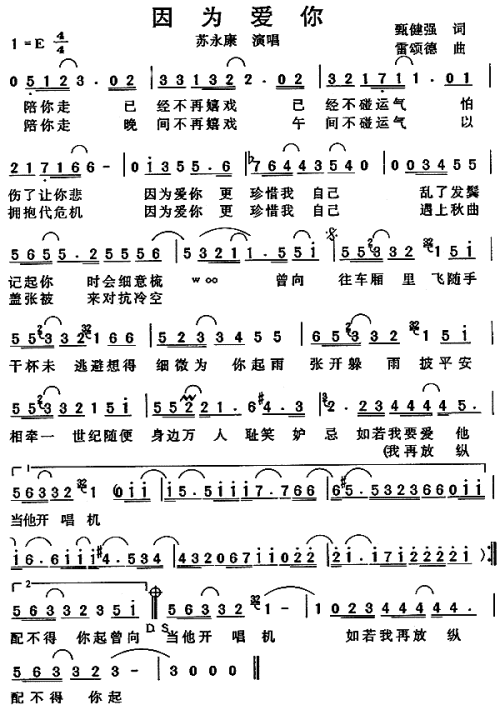 因为爱你
1=E 4/4 苏永康 演唱 甄健强 词
雷颂德 曲
0 5 1 2 3 · 0 2 | 3 3 1 3 2 2 · 0 2 | 3 2 1 7 1 1 · 1 0
陪你走 已 经不再嬉戏 已 经不碰运气 怕
陪你走 晚 间不再嬉戏 午 间不碰运气 以
2 1 7 1 6 6 - | 0 1 3 5 5 · 6 | ♭7 6 4 4 3 5 4 0 | 0 0 3 4 5 4
伤了让你悲 因为爱你 更 珍惜我 自己 乱了发鬓
拥抱代危机 因为爱你 更 珍惜我 自己 遇上秋曲
5 6 5 5 · 2 5 5 5 6 | 5 3 2 1 1 · 5 5 1 | 5 5 5 3 3 2 1 5 5 1
记起你 时会细意梳 woo 曾向 往车厢 里 飞随手
盖张被 来对抗冷空
5 5 5 3 3 2 1 6 6 | 5 2 2 3 3 4 5 5 | 6 5 5 3 3 2 1 5 1
干杯未 逃避想得 细微为 你起雨 张开躲 雨 披平安
5 5 5 3 3 2 2 1 5 1 | 5 5 2 2 1 · 6 #4 · 3 | 2 · 2 3 4 4 4 4 5 ·
相牵一 世纪随便 身边万 人 耻笑 妒 忌 如若我要爱 他
(我再放 纵
1
5 6 3 3 2 1 (0 1 1 | 1 5 · 5 1 1 1 7 · 7 6 6 | #6 5 · 5 3 2 3 6 6 0 1 1
当他开 唱 机
1 6 · 6 1 1 1 #4 · 5 3 4 | 4 3 2 0 6 7 1 1 0 2 2 | 2 1 · 1 7 1 2 2 2 2 1 ) :‖
2
5 6 3 3 2 3 5 1 | 5 6 3 3 2 1 - | 1 0 2 3 4 4 4 4 ·
配不得 你起曾向 D.S. 当他开 唱 机 如若我再放 纵
5 6 3 3 2 3 - | 3 0 0 0 ‖
配不得 你起